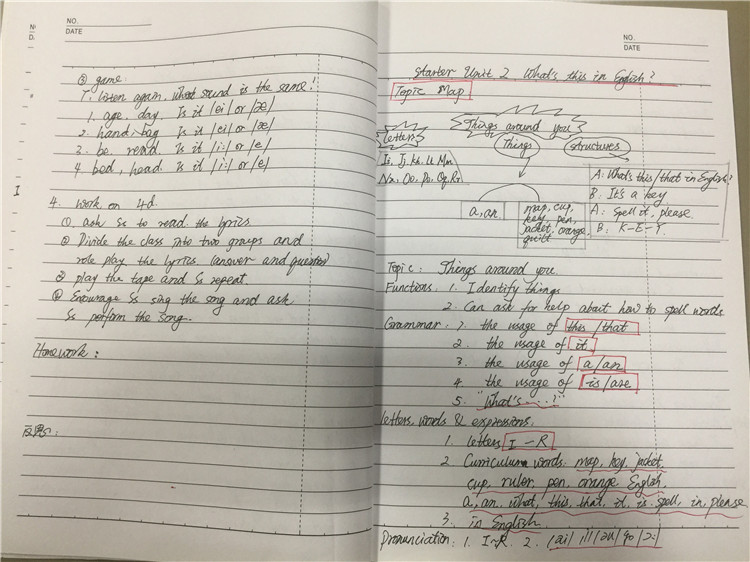 NO.
DATE
③ game.
T: listen again. What sound is the same!
1. age, day. Is it /ei/ or /æ/
2. hand, bag Is it /ei/ or /æ/
3. be read Is it /i:/ or /e/
4 bed, head. Is it /i:/ or /e/
4. Work on 4d.
① ask Ss to read the lyrics.
② Divide the class into two groups and
role play the lyrics. (answer and question)
③ play the tape and Ss repeat.
④ Encourage Ss sing the song and ask
Ss perform the song.
Homework:
反思:
NO.
DATE
Starter Unit 2 What's this in English?
Topic Map
Things around you
Letters
Things
structures
Ii, Jj, Kk, Ll Mm
Nn, Oo, Pp, Qq, Rr
a, an.
map, cup,
key, pen,
jacket, orange,
quilt
A: What's this/that in English?
B: It's a key
A: Spell it, please.
B: K-E-Y
Topic: Things around you
Functions: 1. Identify things
2. Can ask for help about how to spell words
Grammar: 1. the usage of this/that
2. the usage of it.
3. the usage of a/an
4. the usage of is/are
5. "What's ...?"
letters, words & expressions.
1. letters I-R
2 Curriculum words: map, key, jacket,
cup, ruler, pen, orange English.
a, an, what, this, that, it, is, spell, in, please
3. in English.
Pronunciation: 1. I-R. 2.